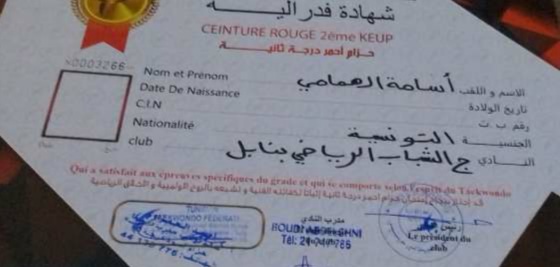 شهادة فدرالية
CEINTURE ROUGE 2ème KEUP
حزام أحمر درجة ثانية
N0003266
Nom et Prénom أسامة الهمامي الاسم و اللقب
Date De Naissance تاريخ الولادة
C.I.N رقم ب.ت
Nationalité التونسية الجنسية
club ج الشباب الرياضي بنابل النادي
Qui a satisfait aux épreuves spécifiques du grade et qui se comporte selon l'esprit du Taekwondo
مدرب النادي
ROUDI ABDELGHNI
Tél:
رئيس
Le président du
club